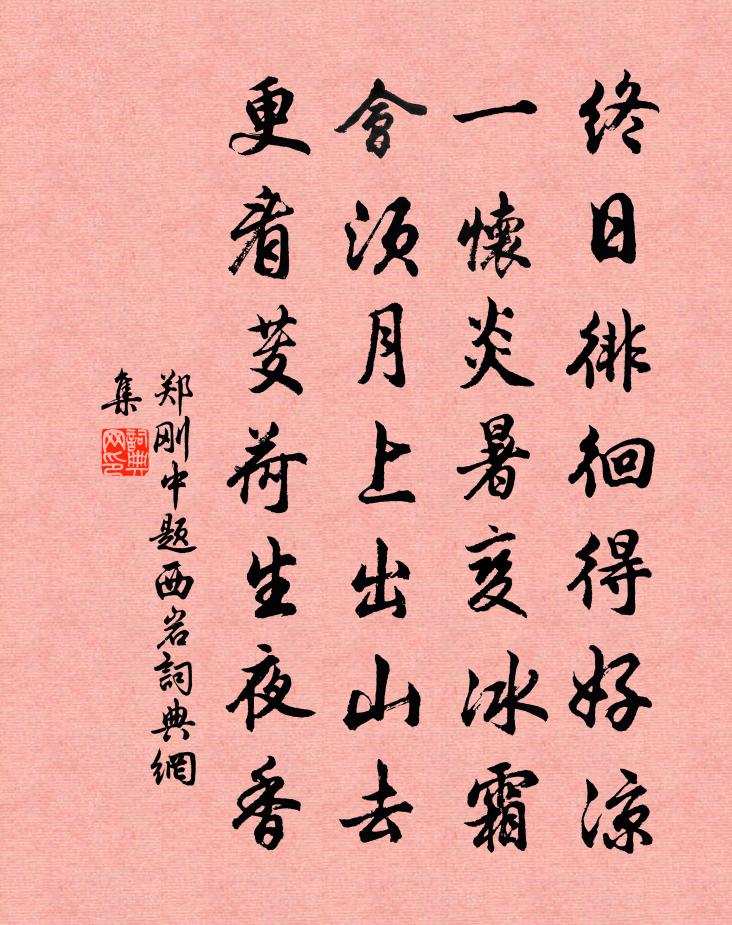 终日徘徊得好凉
一懷炎暑变冰霜
會须月上出山去
更看芰荷生夜香
郑刚中题西岩詞典網
集
詞典
网印